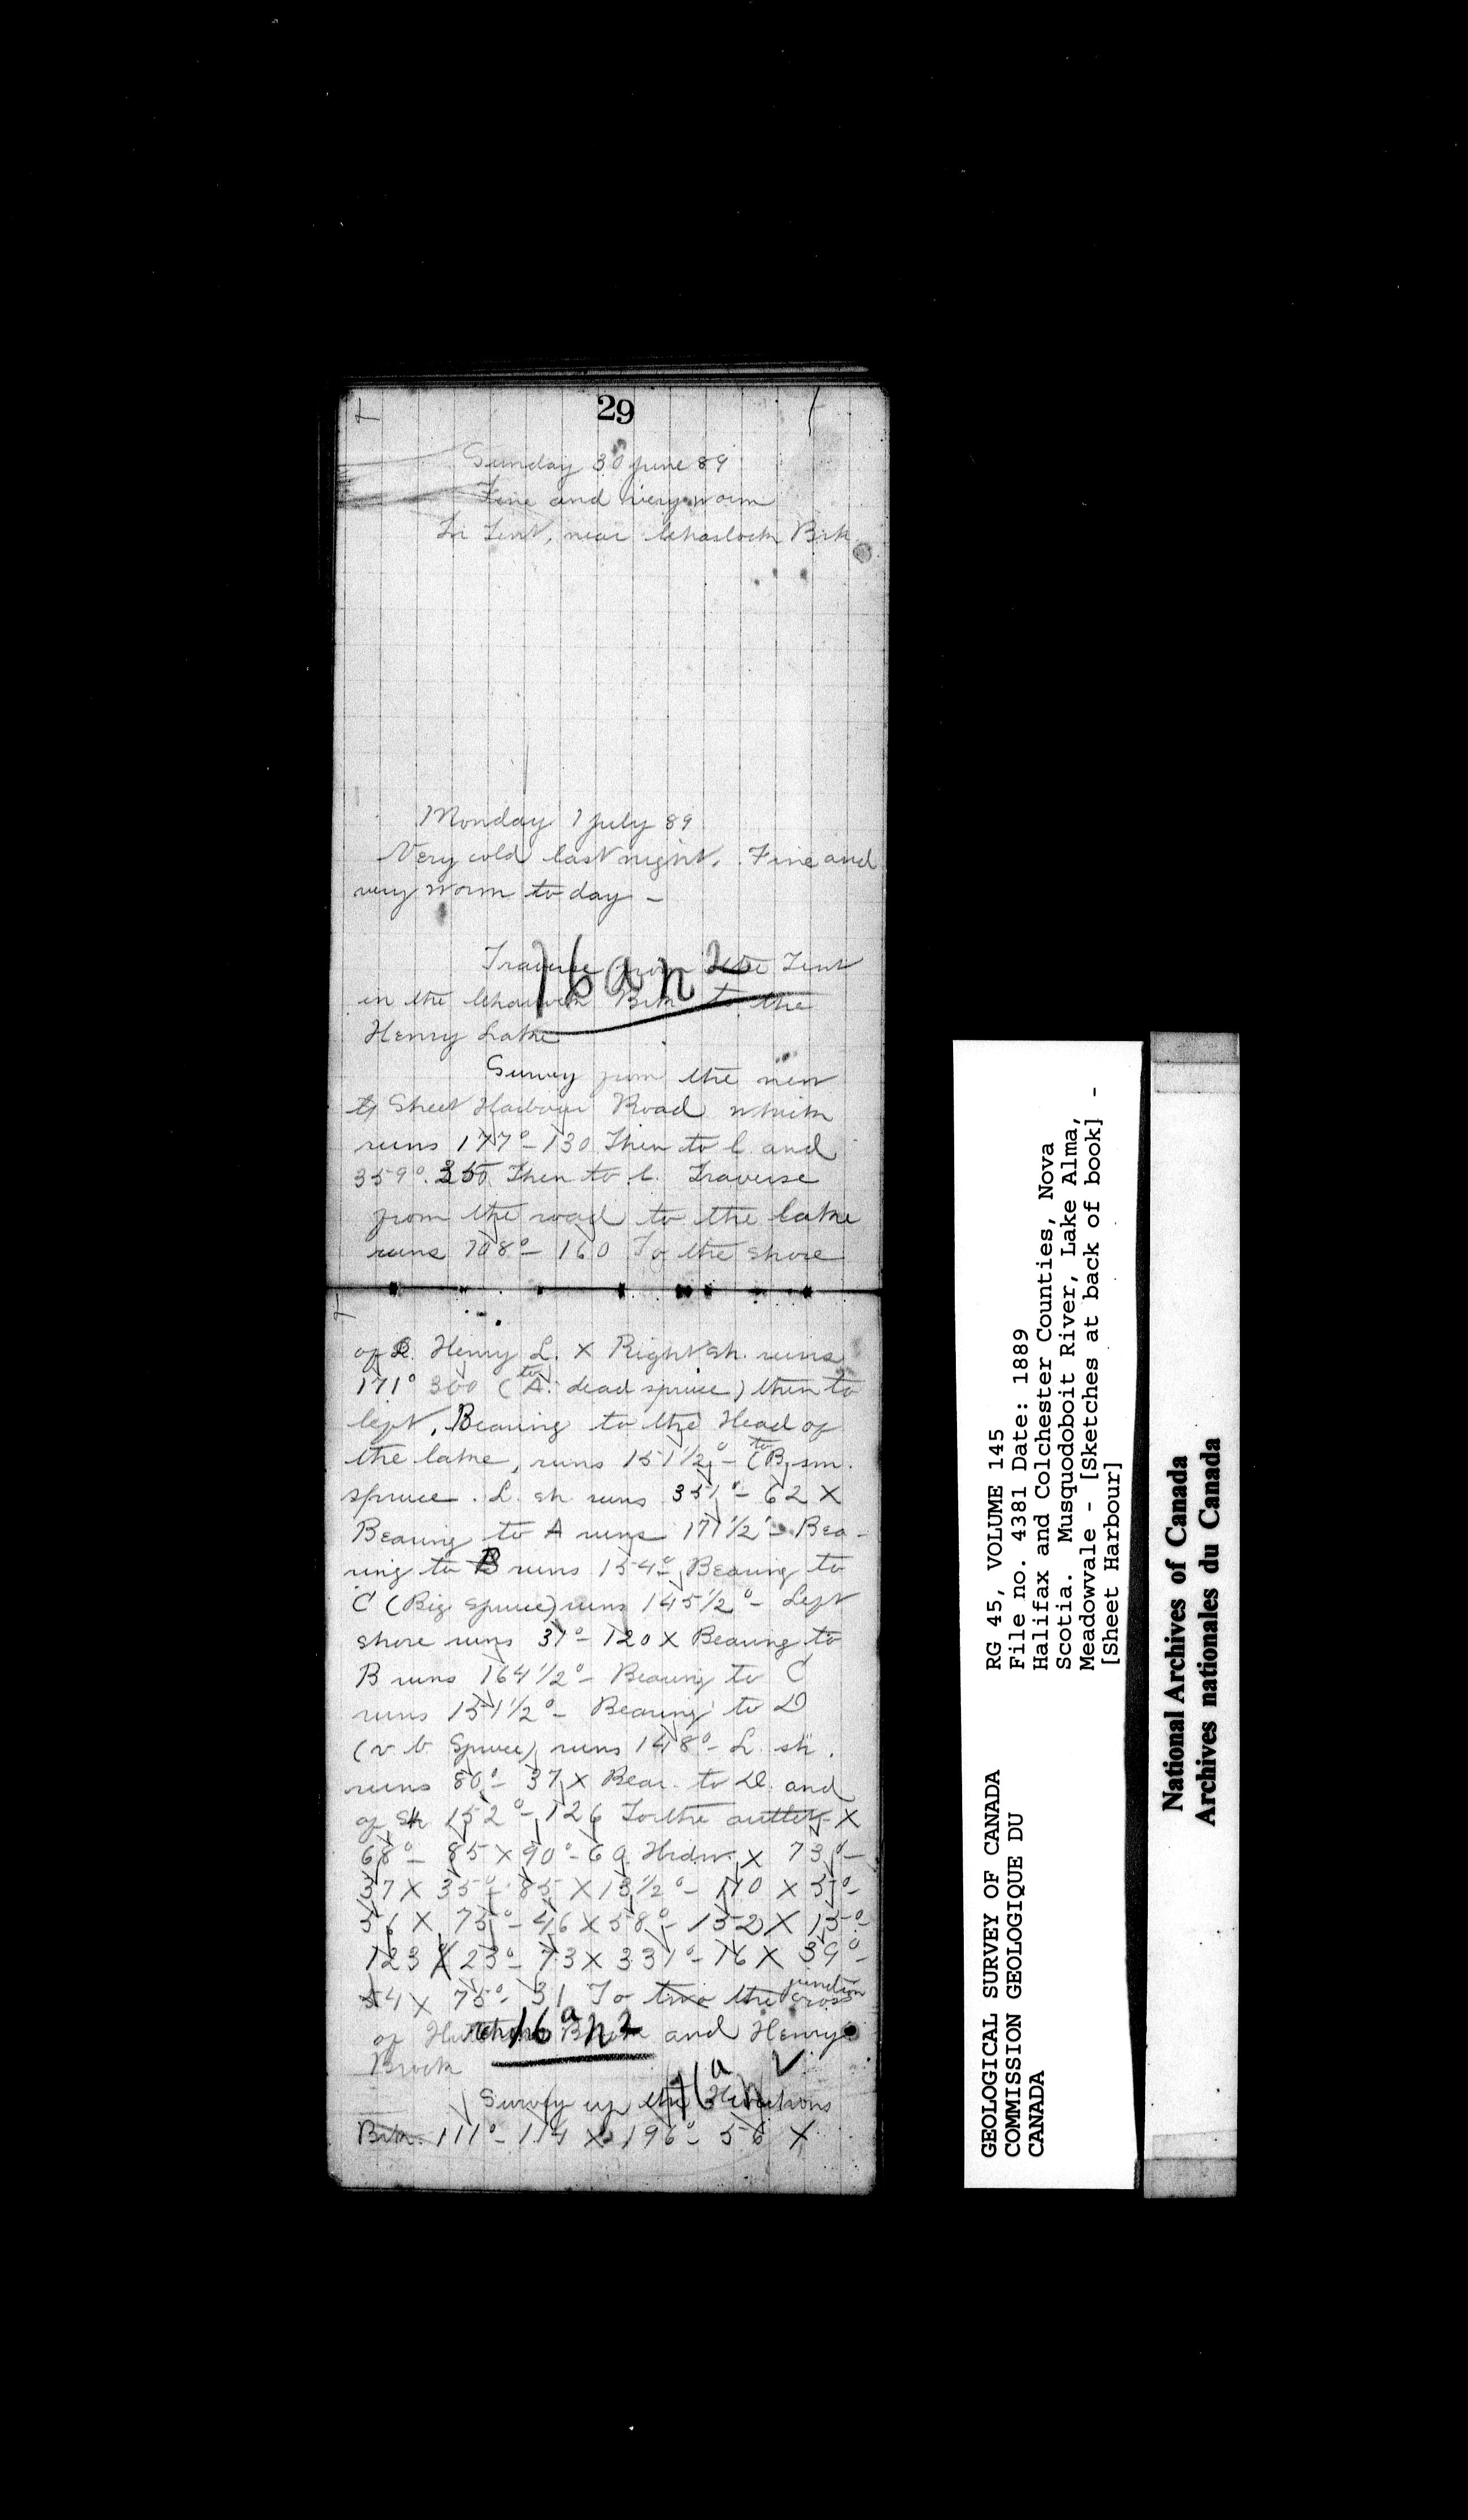 29
Sunday 30 June 89
Fine and very worm
In Tent, near Chaslock Brk
Monday 1 July 89
Very cold last night. Fine and
very worm to day -
16 a n 2
Traverse from the Tent
in the Brk to the
Henry Lake
Survey from the new
Sheet Harbour Road which
runs 177° - 130 Then to l. and
359°. 350 Then to l. Traverse
from the road to the lake
runs 108° - 160 To the shore
of Henry L. X Right sh. runs
171° 300 (to A. dead spruce) then to
left. Bearing to the Head of
the lake, runs 151 1/2° - (to B, sm.
spruce. L. sh runs 351° - 62 X
Bearing to A runs 171 1/2° - Bea-
ring to B runs 154° - Bearing to
C (Big Spruce) runs 145 1/2° - Left
shore runs 31° - 120 X Bearing to
B runs 164 1/2° - Bearing to C
runs 151 1/2° - Bearing to D
(v b Spruce) runs 148° - L. sh.
runs 80° - 37 X Bear. to D. and
of sh 152° - 126 To the outlet X
68° - 85 X 90° - 60 X 73° -
37 X 35° - 85 X 13 1/2° - 110 X 31° -
56 X 75° - 46 X 58° - 152 X 15° -
123 X 23° - 73 X 331° - 16 X 39° -
54 X 75° - 31 To two the cross junction
of Brook and Henry
Brook
16 a n 2
16 a n
Survey up the
Brk. 111° - 114 X 196° - 56 X
RG 45, VOLUME 145
File no. 4381 Date: 1889
Halifax and Colchester Counties, Nova
Scotia. Musquodoboit River, Lake Alma,
Meadowvale - [Sketches at back of book] -
[Sheet Harbour]
GEOLOGICAL SURVEY OF CANADA
COMMISSION GEOLOGIQUE DU
CANADA
National Archives of Canada
Archives nationales du Canada